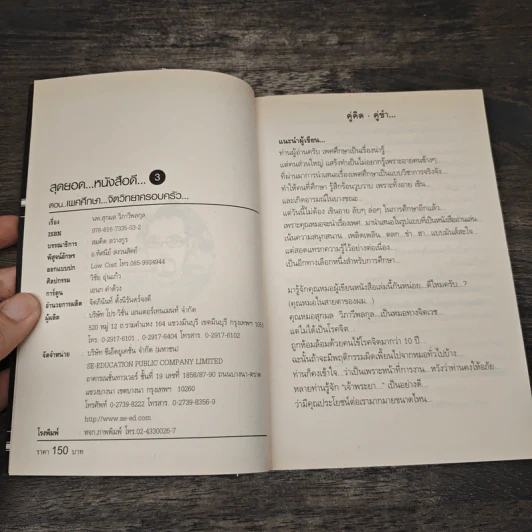 สุดยอด...หนังสือดี... 3
ตอน..เพศศึกษา...จิตวิทยาครอบครัว...
เรื่อง นพ.สุกมล วิภาวีพลกุล
ISBN 978-616-7335-03-2
บรรณาธิการ สมคิด ลวางกูร
พิสูจน์อักษร อ.ทัศนีย์ สงวนสัตย์
ออกแบบปก Low Cost โทร.085-9924944
ศิลปกรรม วิชัย อุ่นแก้ว
การ์ตูน เอนก ดำด้วง
อำนวยการผลิต จิตภินันท์ ตั้งนิรันดร์จงดี
ผู้ผลิต บริษัท โปร-วิชั่น เอนเตอร์เทนเมนท์ จำกัด
520 หมู่ 12 ถ.รามคำแหง 164 แขวงมีนบุรี เขตมีนบุรี กรุงเทพฯ
โทร. 0-2917-6101 , 0-2917-6404 โทรสาร : 0-2917-6102
จัดจำหน่าย บริษัท ซีเอ็ดยูเคชั่น จำกัด (มหาชน)
SE-EDUCATION PUBLIC COMPANY LIMITED
อาคารเนชั่นทาวเวอร์ ชั้นที่ 19 เลขที่ 1858/87-90 ถนนบางนา-ตราด
แขวงบางนา เขตบางนา กรุงเทพฯ 10260
โทรศัพท์ 0-2739-8222 โทรสาร. 0-2739-8356-9
http://www.se-ed.com
โรงพิมพ์ หจก.ภาพพิมพ์ โทร.02-4330026-7
ราคา 150 บาท
คู่คิด - คู่ขำ...
แนะนำผู้เขียน...
ท่านผู้อ่านครับ เพศศึกษาเป็นเรื่องน่ารู้
แต่คนส่วนใหญ่ แสร้งทำเป็นไม่อยากรู้เพราะอายคนข้างๆ
ที่ผ่านมาการนำเสนอเรื่องเพศศึกษาเป็นแบบวิชาการจริงจัง...
ทำให้คนที่ศึกษา รู้สึกร้อนวูบวาบ เพราะทั้งอาย เขิน...
และเกิดอารมณ์ในบางขณะ...
แต่วันนี้ไม่ต้อง เขินอาย ลับๆ ล่อๆ ในการศึกษาอีกแล้ว..
เพราะคุณหมอจะนำเรื่องเพศ.. มานำเสนอในรูปแบบที่เป็นหนังสืออ่านเล่น
เน้นความสนุกสนาน ..เพลิดเพลิน.. ตลก.. ขำ.. ฮา...แบบมันส์สะใจ...
แต่สอดแทรกความรู้ไว้อย่างต่อเนื่อง...
เป็นอีกทางเลือกหนึ่งสำหรับการศึกษา...
มารู้จักคุณหมอผู้เขียนหนังสือเล่มนี้กันหน่อย...ดีไหมครับ..?
(คุณหมอในสายตาของผม..)
คุณหมอสุกมล วิภาวีพลกุล...เป็นหมอทางจิตเวช...
แต่ไม่ได้เป็นโรคจิต...
ถูกห้อมล้อมด้วยคนไข้โรคจิตมากว่า 10 ปี...
ฉะนั้นถ้าจะมีพฤติกรรมผิดเพี้ยนไปจากหมอทั่วไปบ้าง...
ท่านก็คงเข้าใจ..ว่าเป็นเพราะหน้าที่การงาน...หวังว่าท่านคงให้อภัย...
หลายท่านรู้จัก "เจ้าพระยา.." เป็นอย่างดี...
ว่ามีคุณประโยชน์ต่อเรามากมายขนาดไหน...